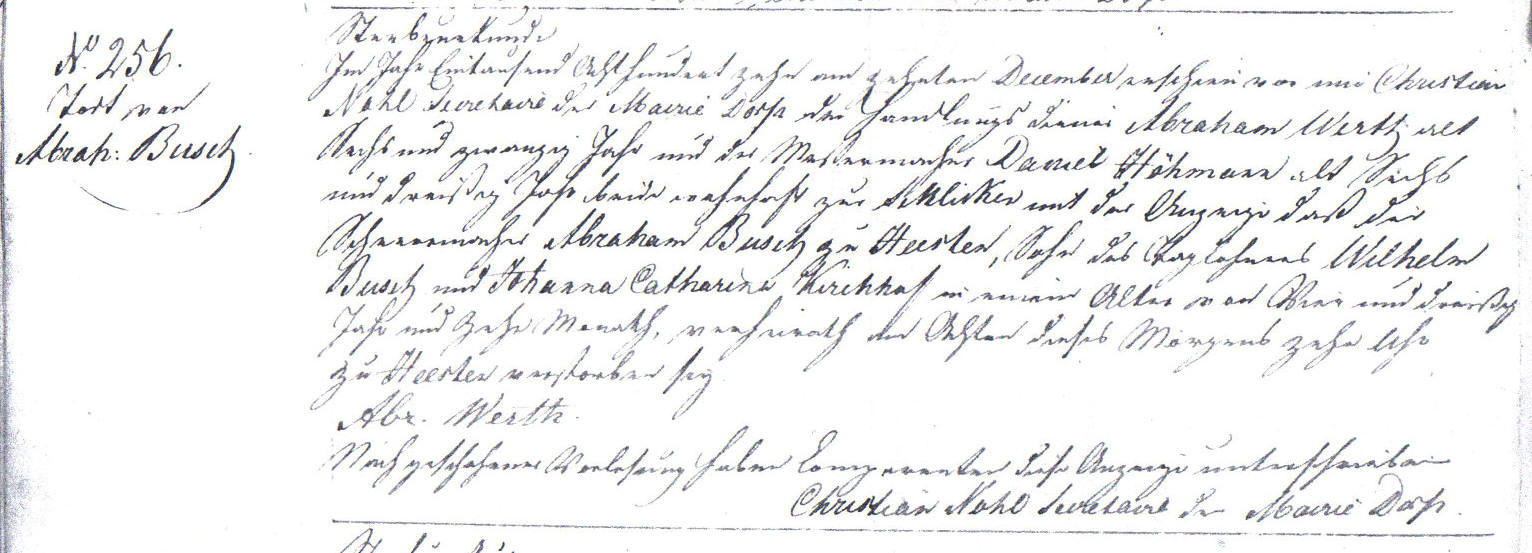 No. 256.
Tod von
Abrah: Busch
Sterbeurkunde
Im Jahr Eintausend Achthundert zehn am zehnten December erschien vor mir Christian
Nohl Secretaire der Mairie Dorp der Handlungs diener Abraham Werth alt
Sechs und zwanzig Jahr und der Messermacher Daniel Höhmann alt Sechs
und dreißig Jahr beide wohnhaft zur mit der Anzeige daß der
Scheeremacher Abraham Busch zu Heester, Sohn des Taglöhners Wilhelm
Busch und Johanna Catharina Kirchhof in einem Alter von Vier und dreißig
Jahr und Zehn Monath, verheirath am Achten dieses Morgens zehn Uhr
zu Heester verstorben sey
Abr. Werth.
Nach geschehener Vorlesung haben Comparenten diese Anzeige unterschrieben
Christian Nohl Secretaire der Mairie Dorp.